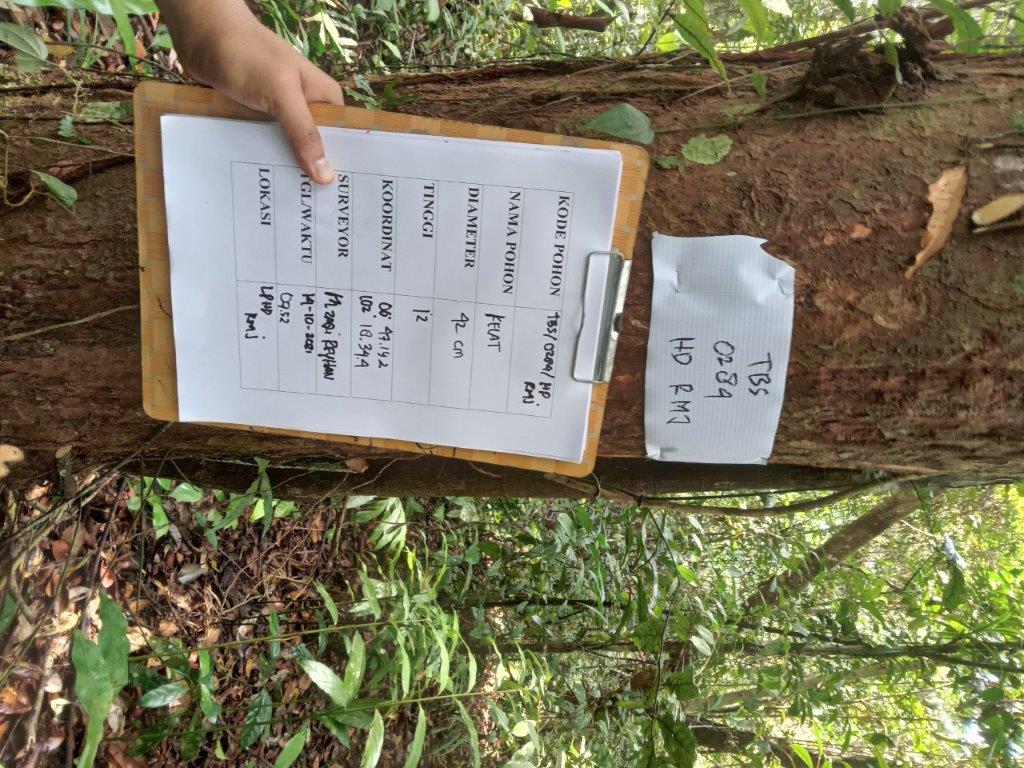 TBS
0284
HD RMJ
KODE POHON TBS/0284/HD
RMJ
NAMA POHON KELAT
DIAMETER 42 cm
TINGGI 12
KOORDINAT 00° 47.142
102° 18.344
SURVEYOR M ZAQI REYHAN
TGL/WAKTU 19-10-2021
09.52
LOKASI LPHD
RMJ